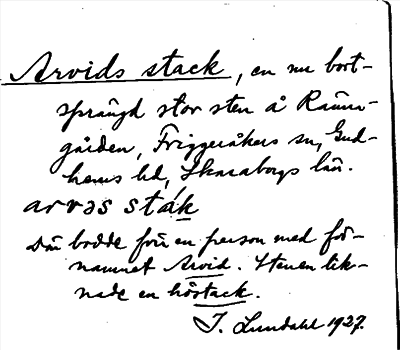 Arvids stack, en nu bort-
sprängd stor sten å Rämn-
gården, Friggeråkers sn, Gud-
hems hd, Skaraborgs län.
arvəs sták
Där bodde förr en person med för-
namnet Arvid. Stenen lik-
nade en höstack.
J. Lundahl 1927.